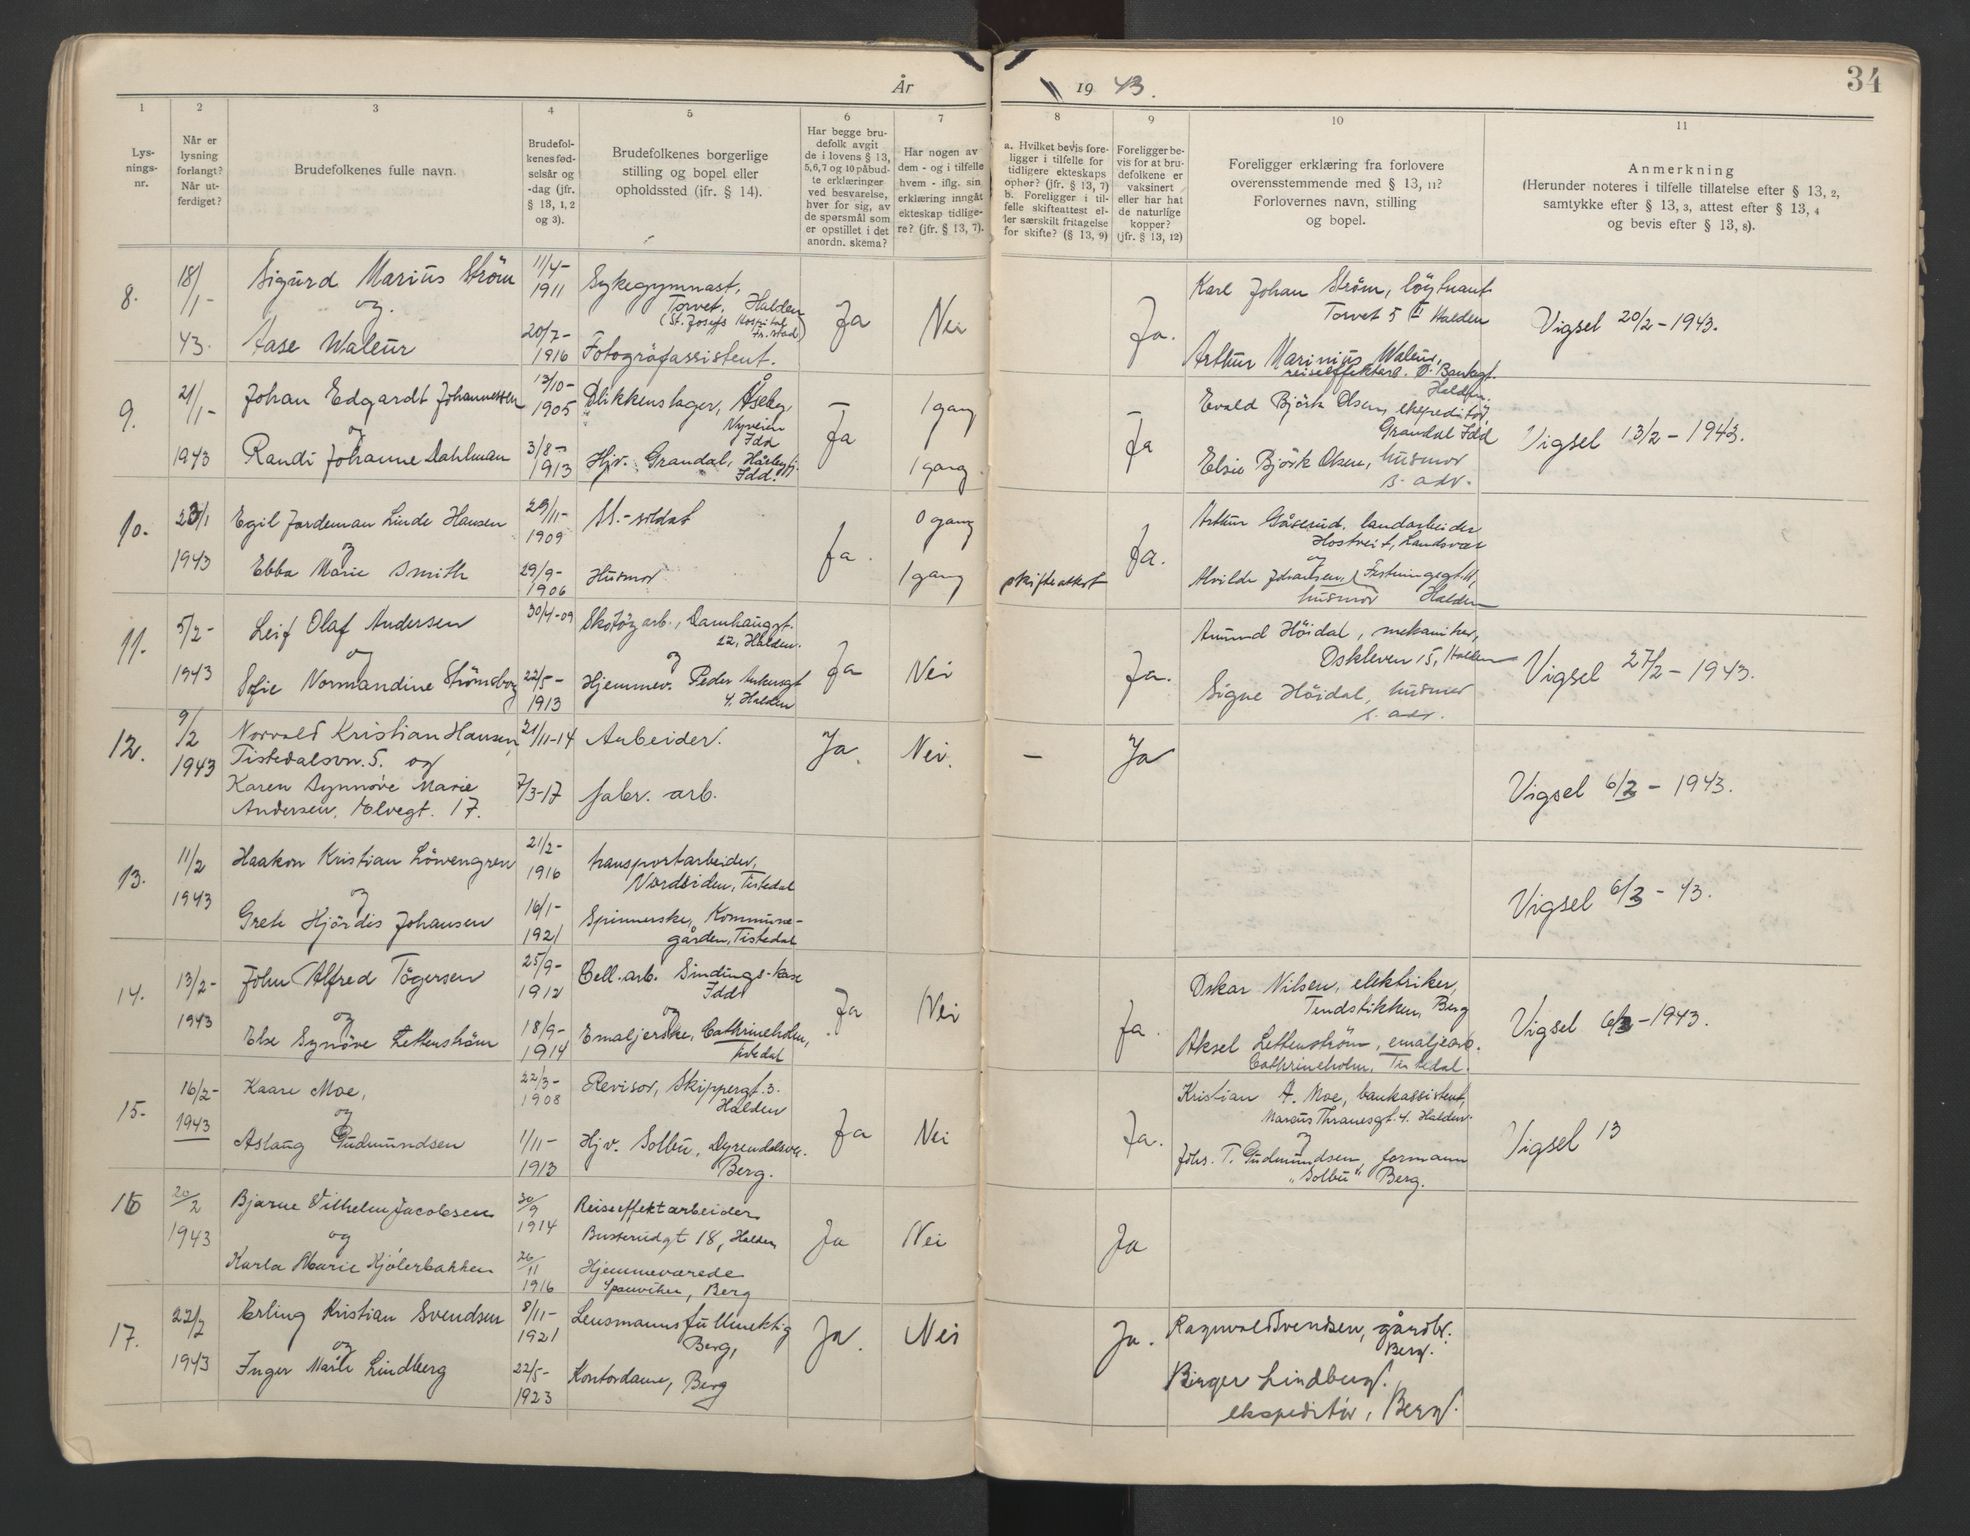 År 1943.
34
1
Lys-
nings-
nr.
2
Når er
lysning
forlangt?
Når ut-
ferdiget?
3
Brudefolkenes fulle navn.
4
Brudefol-
kenes fød-
selsår og
-dag (jfr.
§ 13, 1, 2
og 3).
5
Brudefolkenes borgerlige
stilling og bopel eller
opholdssted (jfr. § 14).
6
Har begge bru-
defolk avgit
de i lovens § 13,
5,6,7 og 10 påbud-
te erklæringer
ved besvarelse,
hver for sig, av
de spørsmål som
er opstillet i det
anordn. skema?
7
Har nogen av
dem - og i tilfelle
hvem - iflg. sin
erklæring inngåt
ekteskap tidlige-
re? (jfr. § 13, 7).
8
a. Hvilket bevis fore-
ligger i tilfelle for
tidligere ekteskaps
ophør? (jfr. § 13, 7)
b. Foreligger i til-
felle skifteattest el-
ler særskilt fritagelse
for skifte? (§ 13, 9)
9
Foreligger be-
vis for at bru-
defolkene er
vaksinert
eller har hat
de naturlige
kopper?
(jfr. § 13, 12)
10
Foreligger erklæring fra forlovere
overensstemmende med § 13, 11?
Forlovernes navn, stilling
og bopel.
11
Anmerkning
(Herunder noteres i tilfelle tillatelse efter § 13, 2,
samtykke efter § 13, 3, attest efter § 13, 4
og bevis efter § 13, 8).
8.
18/1-
43.
Sigurd Marius Ström
og.
Aase Waleur
11/4-
1911
20/7-
1916
Sykegymnast,
Torvet, Halden
(St. Josefs Hospital
Fotografassistent.
Ja
Nei
Ja.
Karl Johan Ström, löytnant
Torvet 5 II Halden
Arthur Marinius Waleur,
reiseffektarb. Ö. Bankgt.
Halden.
Vigsel 20/2 - 1943.
9.
21/1-
1943
Johan Edgardt Johannessen
og
Randi Johanne Dahlman
13/10-
1905
3/8-
1913
Blikkenslager, Åseby,
Nyveien
Idd
Hjv. Grandal,
Idd.
-
Ja
1 gang
1 gang
-
Ja
Evald Björk Olsen, ekspeditör,
Grandal Idd
Elsie Björk Olsen, husmor
s. adr.
Vigsel 13/2 - 1943.
10.
23/1
1943
Egil Jardeman Linde Hansen
og
Ebba Marie Smith
29/11-
1909
29/9-
1906
-soldat
Husmor
Ja.
0 gang
1 gang
skifteattest
Ja.
Arthur Gåserud, landarbeider
og
husmor Halden
11.
5/2-
1943
Leif Olaf Andersen
og
Sofie Normandine Strömsborg
30/4-09
22/5-
1913
Skotöyarb., Damhaugt.
22, Halden.
og
Hjemmev. Peder Ankersgt
4, Halden
Ja
Nei
Ja.
Amund Höidal, mekaniker,
Oskleven 15, Halden
Signe Höidal, husmor
s. adr.
Vigsel 27/2 - 1943.
12.
9/2
1943
Norvald Kristian Hansen,
Tistedalsvn. 5. og
Karen Synnöve Marie
Andersen, Elvegt. 17.
21/11-14
7/3-17
Arbeider.
fabr. arb.
Ja.
Nei.
-
Ja
Vigsel 6/3 - 1943.
13.
11/2
1943
Haakon Kristian Löwengren
og
Grete Hjördis Johansen
21/2-
1916
16/1-
1921
transportarbeider,
Nordsiden, Tistedal
Spinnerske, Kommune-
gården, Tistedal
Vigsel 6/3 - 43.
14.
13/2-
1943
John Alfred Tögersen
og
Else Synöve Lettenström
25/9-
1912
18/9-
1914
Cell. arb. Sindings-kase
Idd
og
Emaljerske, Cathrineholm,
Tistedal
Ja
Nei
Ja.
Oskar Nilsen, elektriker,
Tendstikken, Berg
Aksel Lettenström, emaljearb.
Cathrineholm, Tistedal.
Vigsel 6/3 - 1943.
15.
16/2-
1943
Kaare Moe,
og
Aslaug Gudmundsen
22/3-
1908
1/11-
1913
Revisor, Skippergt. 3.
Halden
Hjv. Solbu, Dyrendalsvn.
Berg.
Ja
Nei
Ja.
Kristian A. Moe, bankassistent,
Marcus Thranesgt. 4. Halden.
og
Johs. T. Gudmundsen, formann
"Solbu" Berg.
Vigsel 13
16
20/2
1943
Bjarne Vilhelm Jacobsen
og
Karla Marie Kjölerbakken
30/9
1914
26/11
1916
Reiseeffektarbeider
Busterudgt 18, Halden
Hjemmeværede
Sponviken, Berg
Ja
Nei
Ja
17.
22/2
1943
Erling Kristian Svendsen
og
Inger Marie Lindberg
8/11-
1921
22/5-
1923
Lensmannsfullmektig
Berg,
Kontordame, Berg
Ja.
Nei
Ja.
Ragnvald Svendsen, gårdbr.
Berg.
Birger Lindberg.
ekspeditör, Berg.